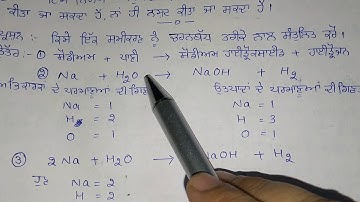 ਕੀਤਾ ਜਾ ਸਕਦਾ ਹੈ, ਨਾਂ ਹੀ ਨਸ਼ਟ ਕੀਤਾ ਜਾ ਸਕਦਾ ਹੈ।
ਕਿਸੇ ਇੱਕ ਸਮੀਕਰਣ ਨੂੰ ਤਰੀਕੇ ਨਾਲ ਸੰਤੁਲਿਤ ਕਰੋ।
① ਸੋਡੀਅਮ + ਪਾਣੀ → ਸੋਡੀਅਮ ਹਾਈਡ੍ਰੋਕਸਾਈਡ + ਹਾਈਡ੍ਰੋਜਨ
② Na + H2O → NaOH + H2
ਦੇ ਪਰਮਾਣੂਆਂ ਦੀ ਗਿਣ ਉਤਪਾਦਾਂ ਦੇ ਪਰਮਾਣੂਆਂ ਦੀ ਗਿਣ
Na = 1 Na = 1
H = 2 H = 3
O = 1 O = 1
③ 2 Na + H2O → NaOH + H2
ਹੁਣ Na = 2
H = 2